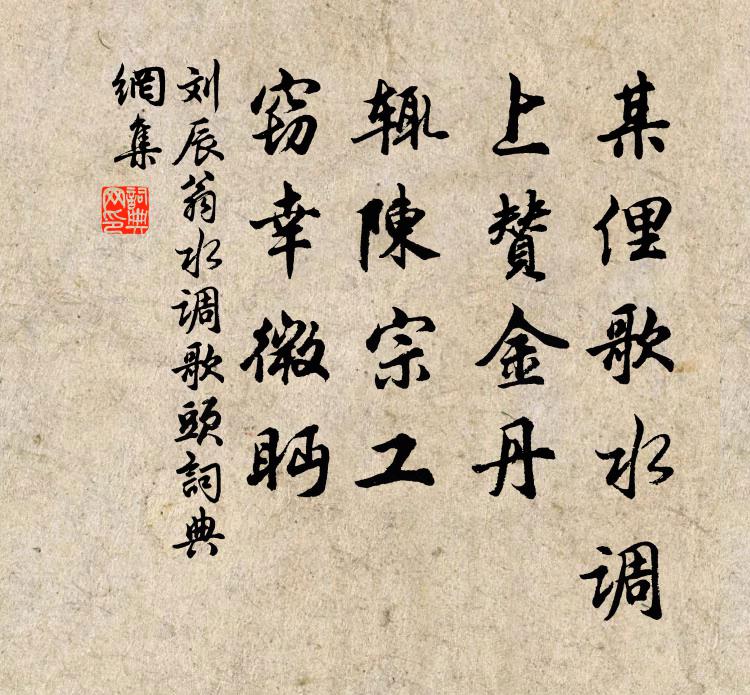 某俚歌水调
上赞金丹
辄陳宗工
窃幸微眄
刘辰翁水调歌頭詞典
網集
詞典
网印